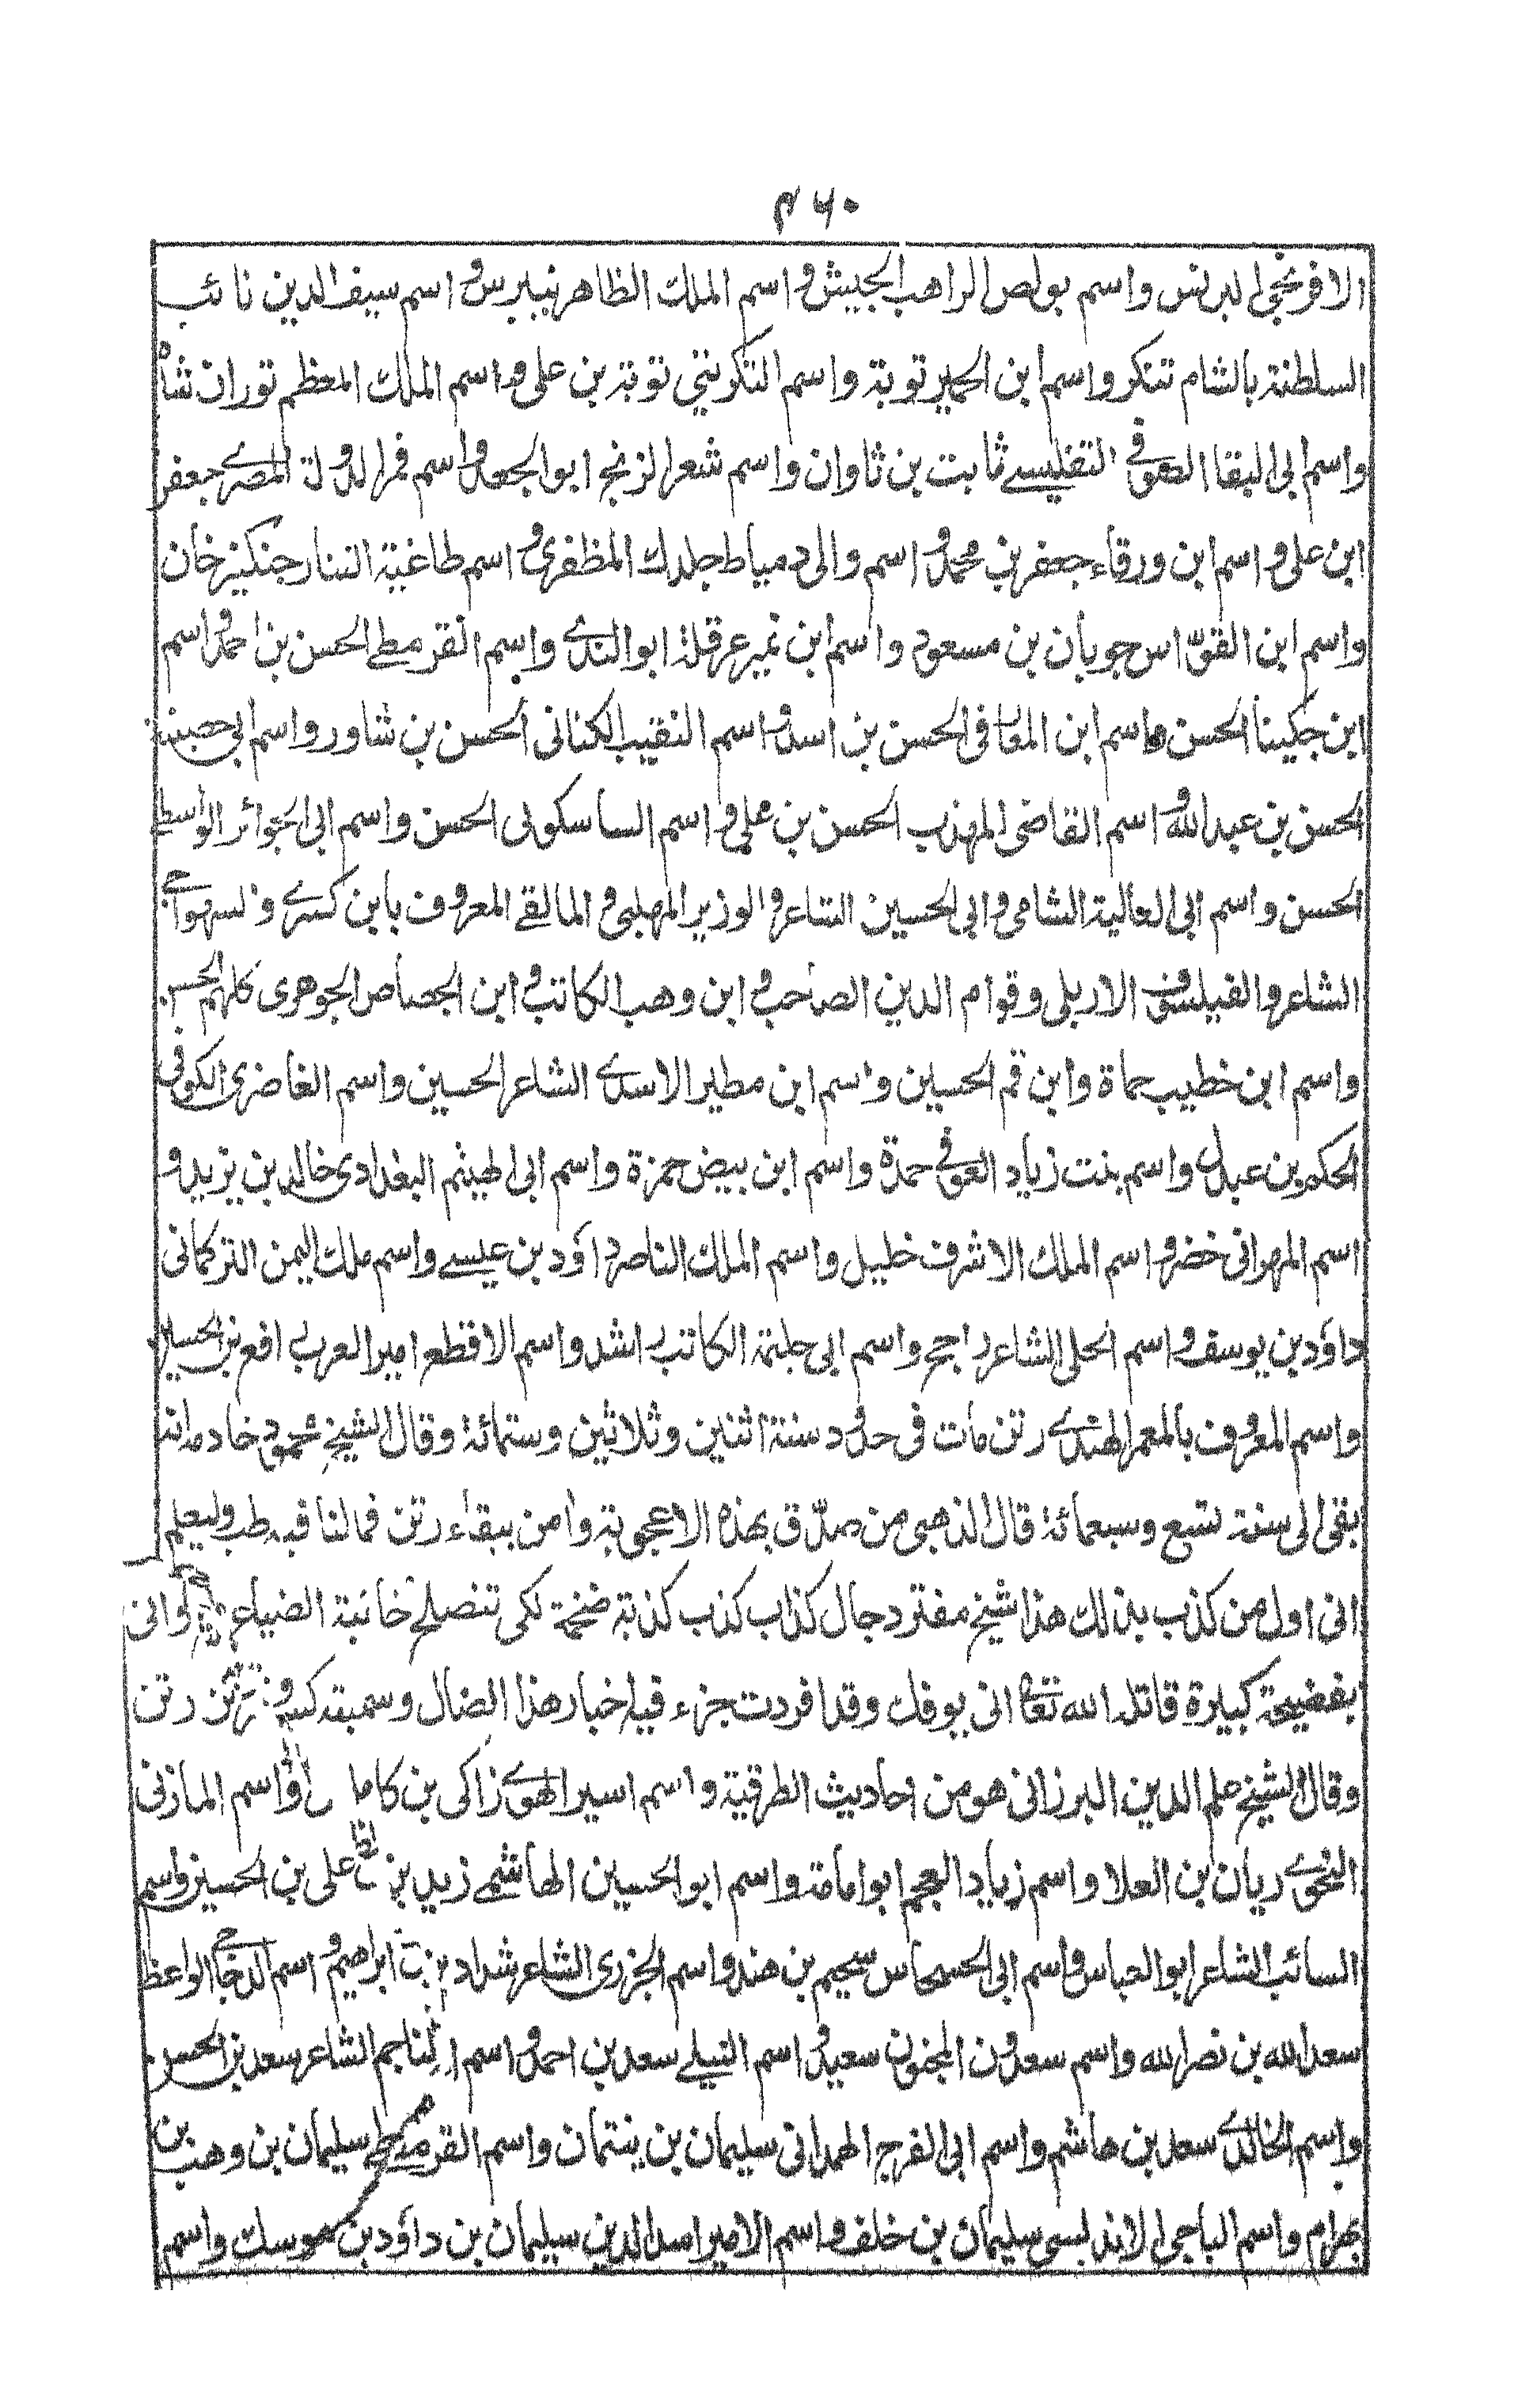 ۴۶۰
الافرنجي البرنس واسم بولص الراهب الجيش واسم الملك الظاهر بيبرس واسم سيف الدين نائب
السلطنة بالشام تنكر واسم ابن الحمير توبة واسم التكريتي توبة بن على واسم الملك المعظم توران شاه
واسم ابى البقا الصوفى التفليسے ثابت بن ثاوان واسم شعر الزنج ابو الجعد واسم قمر الدولة المصرے جعفر
ابن على واسم ابن ورقاء جعفر بن محمد واسم والى دمياط جلدك المظفرى واسم طاغية التتار جنكيز خان
واسم ابن القوّاس جوبان بن مسعود واسم ابن نمير عرقلة ابو الندے واسم القرمطے الحسن بن احمد واسم
ابن جكينا الحسن واسم ابن المعافى الحسن بن اسد واسم النقيب الكنانى الحسن بن شاور واسم ابى حصينة
الحسن بن عبد الله واسم القاضى المهذب الحسن بن على واسم الساسكونى الحسن واسم ابى الجوائز الواسطے
الحسن واسم ابى العالية الشامى وابى الحسين الشاعر والوزير المهلبى والمالقے المعروف بابن كسرے والسهواجے
الشاعر والفيلسوف الاربلى وقوام الدين الصاحب وابن وهب الكاتب وابن الجصاص الجوهرى كلهم الحسن
واسم ابن خطيب حماة وابن قم الحسين واسم ابن مطير الاسدے الشاعر الحسين واسم الغاضرى الكوفى
الحكم بن عبدل واسم بنت زياد العوفى حمدة واسم ابن بيض حمزة واسم ابى الهيثم البغدادى خالد بن يزيد و
اسم المهرانى خضر واسم الملك الاشرف خليل واسم الملك الناصر داؤد بن عيسے واسم ملك اليمن التركمانى
داؤد بن يوسف واسم الحلى الشاعر راجح واسم ابى حلبة الكاتب راشد واسم الاقطع امير العرب رافع بن الحسين
واسم المعروف بالمعمر الهندے رتن مات فى حدود سنة اثنين وثلاثين وستمائة وقال الشيخ محمود خادمه انه
بقى الى سنة تسع وسبعمائة قال الذهبى من صدّق بهذه الاعجوبة وامن ببقاء رتن فما لنا فيه طب وليعلم
انى اول من كذب بذلك هذا شيخ مفتر دجال كذاب كذب كذبة ضخمة لكى تنصلح خائبة الضياع واتى
بفضيحة كبيرة قاتله الله تعا انى يوفك وقد افردت جزء فيه اخبار هذا الضال وسميته كسر وثن رتن
وقال الشيخ علم الدين البرزانى هو من احاديث الطرقية واسم اسير الهوے زاكى بن كامل واسم المازنى
النحوے ريان بن العلا واسم زياد العجم ابو امامة واسم ابو الحسين الهاشمے زيد بن على بن الحسين واسم
السائب الشاعر ابو العباس واسم ابى الحسحاس سحيم بن هند واسم الجزرى الشاعر شداد بن ابراهيم واسم الدجاجے الواعظ
سعد الله بن نصر الله واسم سعدون المجنون سعيد واسم النيلے سعد بن احمد واسم الناجم الشاعر سعد بن الحسن
واسم الخالدے سعد بن هاشم واسم ابى الفرج الهمدانى سليمان بن ينتمان واسم القرمطے سليمان بن وهب بن
بهرام واسم الباجى الاندلسى سليمان بن خلف واسم الامير اسد الدين سليمان بن داؤد بن موسك واسم